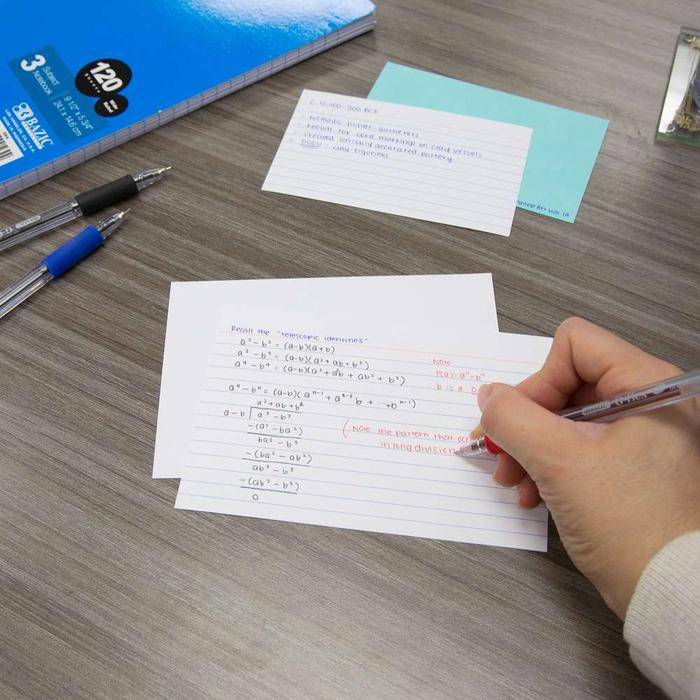 120
3 Subject Notebook
9 1/2" x 5 3/4"
24.1 x 14.6 cm
BAZIC
LOS ANGELES, CA. U.S.A.
- Nomadic hunter-gatherers
- Known for cord markings on clay vessels
- created lavishly decorated pottery
- DOGU: clay figurines
Art Hist 1A
Recall the "telescopic identities"
a² - b² = (a-b)(a+b)
a³ - b³ = (a-b)(a²+ab+b²)
a⁴ - b⁴ = (a-b)(a³ + a²b + ab² + b³)
aⁿ - bⁿ = (a-b)(aⁿ⁻¹ + aⁿ⁻²b + ... + bⁿ⁻¹)
a² + ab + b²
a-b a³ - b³
-(a³ - ba²)
ba² - b³
-(ba² - ab²)
ab² - b³
-(ab² - b³)
0
Note
P(a) = aⁿ-bⁿ
b is a
(Note the pattern that
in long division